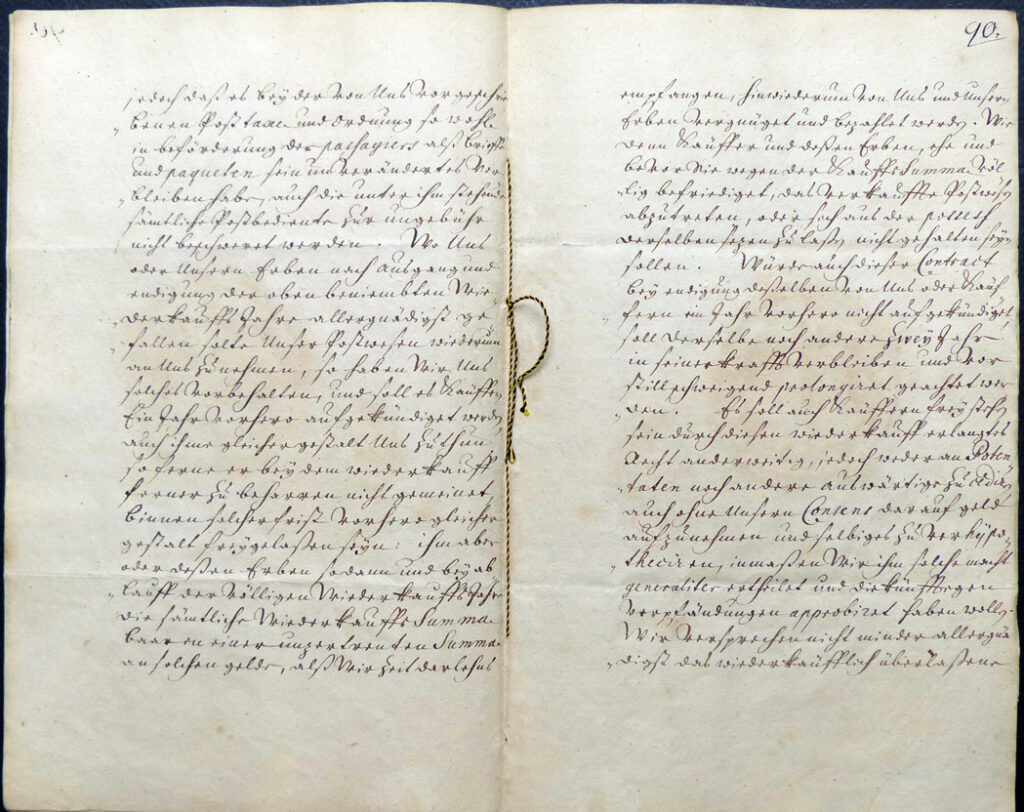 jedoch daß es bey der von Uns vorgeschrie
„ benen Post taxe und Ordnung so wohl
in beförderung der passagiers alß briefe
und paqueten sein unverändertes Ver
„ bleiben habe, auch die unter ihm stehende
sämtliche Postbediente zur ungebühr
nicht beschweret werden. Wo Uns
oder Unsern Erben nach Ausgang und
endigung der oben beniembten Wie„
„ derkauffs Jahre allergnädigst ge
„ fallen solte Unser Postwesen wiederum
an Uns zu nehmen, so haben Wir Uns
solches vorbehalten, und soll es Käuffern
Ein Jahr vorhero aufgekündiget werden
auch ihme gleicher gestalt Uns zu thun
so ferne er bey dem wiederkauff
ferner zu beharren nicht gemeinet,
binnen solcher frist vorhero gleicher
gestalt freygelaßen seyn: ihm aber
oder deßen Erben sodann und bey ab
„ lauff der völligen Wiederkauffs Jahre
die sämtliche Wiederkauffs Summa
baar in einer unzertrenten Summa
an solchen gelde, alß Wir Zeit darlehns
90.
empfangen, hinwiederum von Uns und unsern
Erben vergnüget und bezahlet werden. Wie
denn Käuffer und deßen Erben, ehe und
bevor Sie wegen der Kauffs Summa völ
„ lig befriediget, das verkauffte Postwesen
abzutreten, oder sich aus der possess
derselben sezen zu laßen nicht gehalten seyn
sollen. Würde auch dieser Contract
bey endigung deßelben von Uns oder Käuf
„ fern ein Jahr vorhero nicht aufgekündiget,
soll derselbe noch andere zwey Jahr
in seiner krafft verbleiben und vor
stillschweigend prolongiret geachtet wer
„ den. Es soll auch Käuffern frey stehen
sein durch diesen wiederkauff erlangtes
Recht anderweitig, jedoch weder an Poten
„ taten noch andere Auswärtige zu cediren
auch ohne Unsern Consens darauf geld
aufzunehmen und selbiges zu verhypo„
„ theciren, inmaßen Wir ihm solche macht
generaliter ertheilet und die künfftigen
verpfändungen approbiret haben wollen.
Wir versprechen nicht minder allergnä
„ digst das wiederkäufflich überlaßene